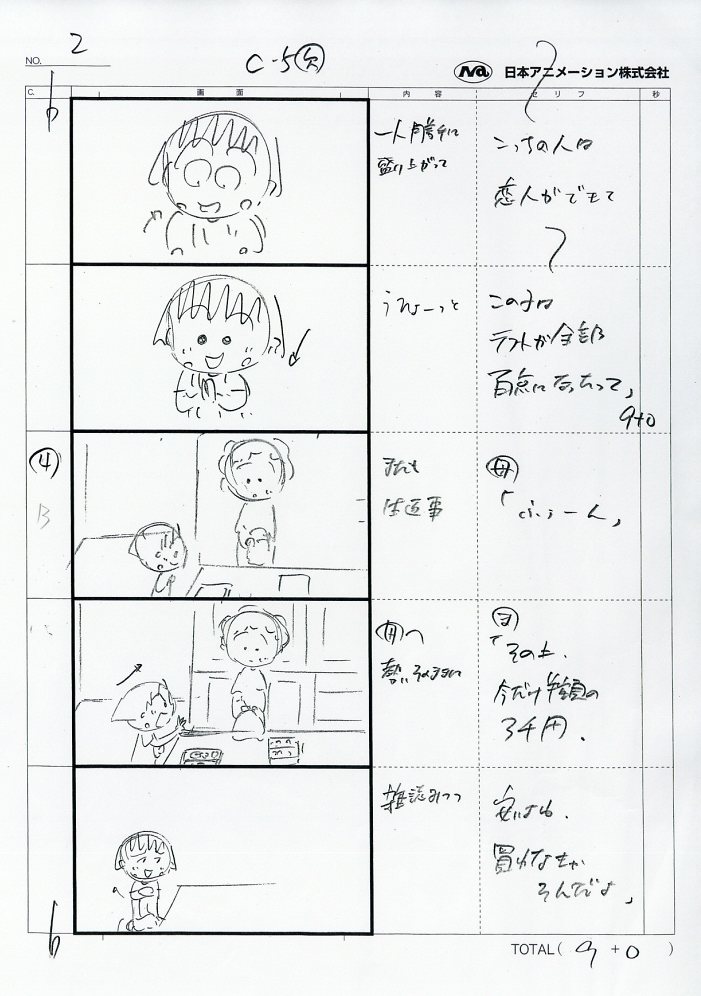 NO. 2
C-5 欠
Na 日本アニメーション株式会社
C.
画面
内容
セリフ
秒
一人勝手に
盛り上がって
こっちの人は
恋人ができて
うひょーっと
この子は
テストが全部
百点になったって」
9+0
4
B
母
生返事
「ふぅーん」
母へ
勢いそのままに
ま
「その上、
今だけ半額の
3千円、
雑誌みつつ
安いよね、
買わなきゃ
そんだよ」
TOTAL( 9 + 0 )